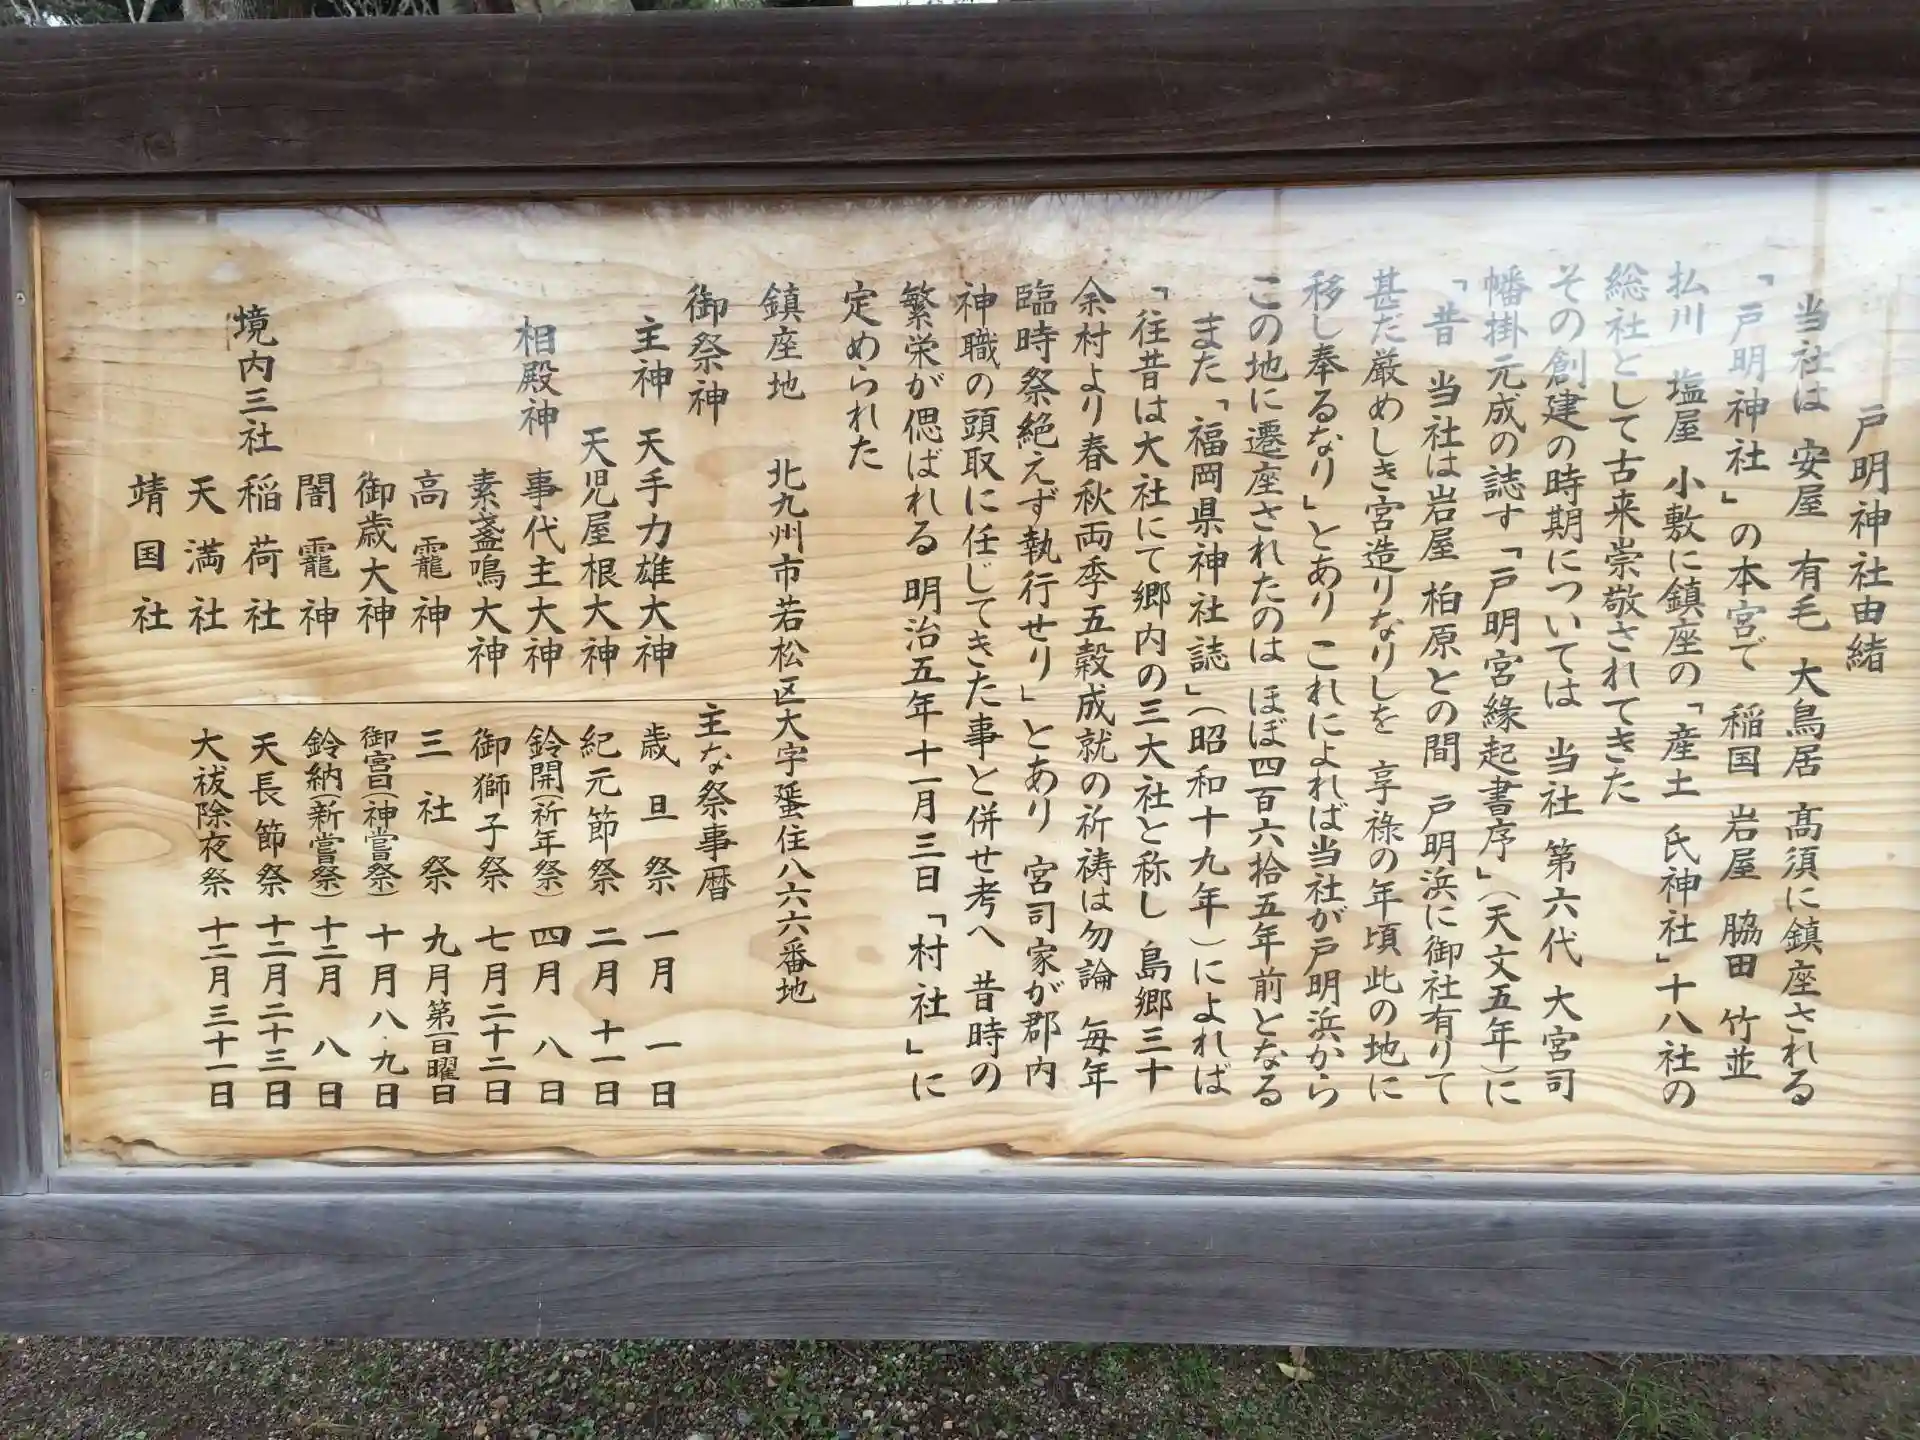 戸明神社由緒
当社は 安屋 有毛 大鳥居 高須に鎮座される
「戸明神社」の本宮で 稲国 岩屋 脇田 竹並
払川 塩屋 小敷に鎮座の「産土 氏神社」十八社の
総社として古来崇敬されてきた
その創建の時期については 当社 第六代 大宮司
幡掛元成の誌す「戸明宮縁起書序」(天文五年)に
「昔 当社は岩屋 柏原との間 戸明浜に御社有りて
甚だ厳めしき宮造りなりしを 享祿の年頃此の地に
移し奉るなり」とあり これによれば当社が戸明浜から
この地に遷座されたのは ほぼ四百六拾五年前となる
また「福岡県神社誌」(昭和十九年)によれば
「往昔は大社にて郷内の三大社と称し 島郷三十
余村より春秋両季五穀成就の祈祷は勿論 毎年
臨時祭絶えず執行せり」とあり 宮司家が郡内
神職の頭取に任じてきた事と併せ考へ 昔時の
繁栄が偲ばれる 明治五年十一月三日「村社」に
定められた
鎮座地 北九州市若松区大字蜑住八六六番地
御祭神
主神 天手力雄大神
天児屋根大神
相殿神 事代主大神
素盞鳴大神
高龗神
御歳大神
闇龗神
境内三社 稲荷社
天満社
靖国社
主な祭事暦
歳旦祭 一月一日
紀元節祭 二月十一日
鈴開(祈年祭) 四月八日
御獅子祭 七月二十二日
三社祭 九月第一日曜日
御宮日(神嘗祭) 十月八・九日
鈴納(新嘗祭) 十二月八日
天長節祭 十二月二十三日
大祓除夜祭 十二月三十一日